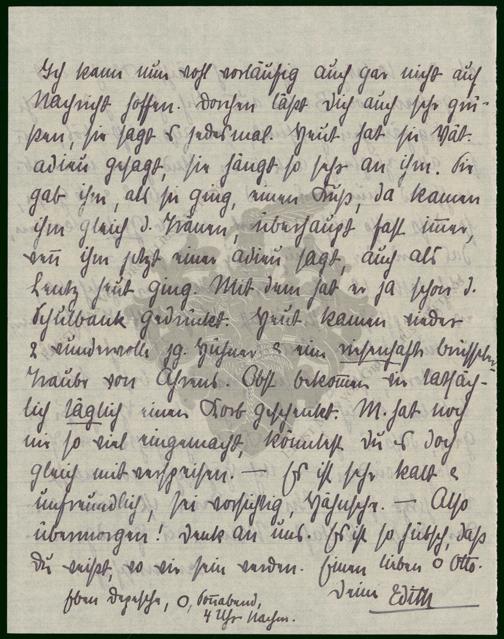 Ich kann nun wohl vorläufig auch gar nicht auf
Nachricht hoffen. Dorchen läßt Dich auch sehr grü-
ßen, sie sagt es jedesmal. Heut hat sie Vat.
adieu gesagt, sie hängt so sehr an ihm. Sie
gab ihm, als sie ging, einen Kuß, da kamen
ihm gleich d. Tränen, überhaupt fast immer,
wenn ihm jetzt einer adieu sagt, auch als
Lentz heut ging. Mit dem hat er ja schon d.
Schulbank gedrückt. Heut kamen wieder
2 wundervolle jg. Hühner & eine riesenhafte brüsseler
Traube von Ehrens. Obst bekommen wir tatsäch-
lich täglich einen Korb geschenkt. M. hat noch
nie so viel eingemacht, könntest Du es doch
gleich mit verspeisen. — Es ist sehr kalt &
unfreundlich, sei vorsichtig, Hähnsche. — Also
übermorgen! Denk an uns. Es ist so hübsch, daß
Du weißt, wo wir sein werden. Einen lieben O Otto.
Deine Edith
Eben Depesche, O, Sonnabend,
4 Uhr Nachm.